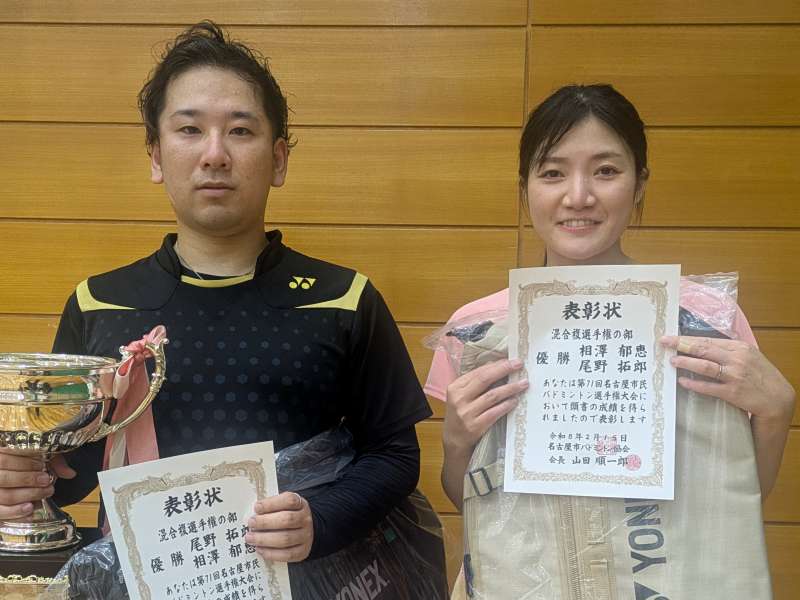 表彰状
混合複選手権の部
優勝 相澤 郁恵
尾野 拓郎
あなたは第71回名古屋市民
バドミントン選手権大会に
おいて頭書の成績を得ら
れましたので表彰します
令和8年2月15日
名古屋市バドミントン協会
会長 山田 順一郎
表彰状
混合複選手権の部
優勝 尾野 拓郎
相澤 郁恵
あなたは第71回名古屋
バドミントン選手権
YONEX
YONEX